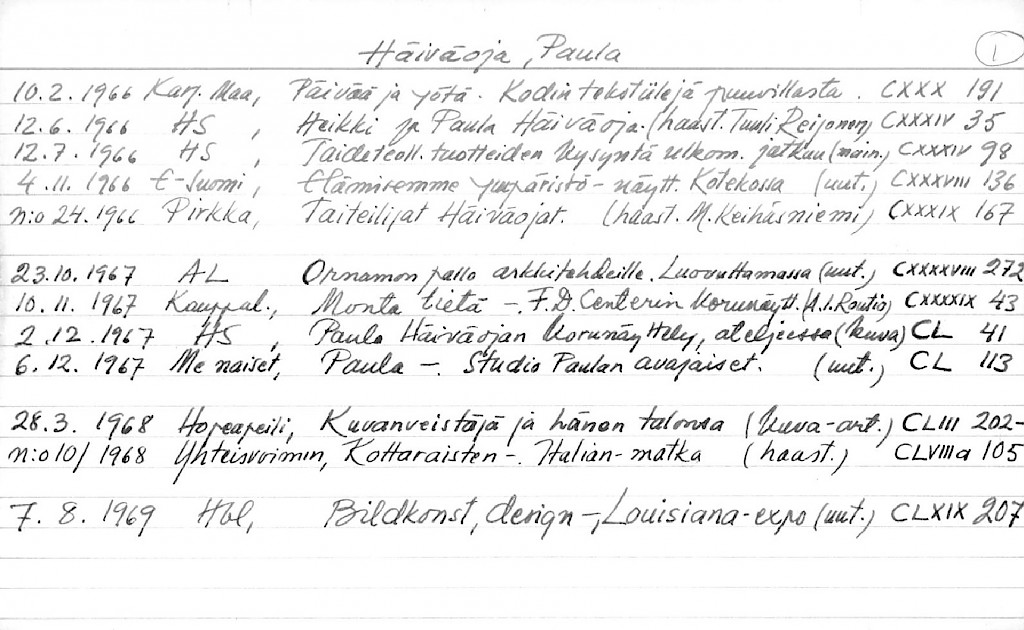 Häiväoja, Paula 1
10.2.1966 Karj. Maa, Päivää ja yötä - Kodin tekstiilejä puuvillasta. CXXX 191
12.6.1966 HS, Heikki ja Paula Häiväoja. (haast. Tuuli Reijonen) CXXXIV 35
12.7.1966 HS, Taideteoll. tuotteiden kysyntä ulkom. jatkuu (main.) CXXXIV 98
4.11.1966 E-Suomi, Elämisemme ympäristö - näytt. Kotekossa (uut.) CXXXVIII 136
n:o 24.1966 Pirkka, Taiteilijat Häiväojat. (haast. M. Keihäsniemi) CXXXIX 167
23.10.1967 AL Ornamon pallo arkkitehdeille. Luovuttamassa (uut.) CXXXXVIII 272
10.11.1967 Kauppal., Monta tietä -. F.D. Centerin korunäytt. (A.I. Routio) CXXXXIX 43
2.12.1967 HS, Paula Häiväojan korunäyttely, ateljeessa (kuva) CL 41
6.12.1967 Me naiset, Paula -. Studio Paulan avajaiset. (uut.) CL 113
28.3.1968 Hopeapeili, Kuvanveistäjä ja hänen talonsa (kuva-art.) CLIII 202-
n:o 10/1968 Yhteisvoimin, Kottaraisten -. Italian-matka (haast.) CLVIIIa 105
7.8.1969 Hbl, Bildkonst, design -, Louisiana-expo (uut.) CLXIX 207